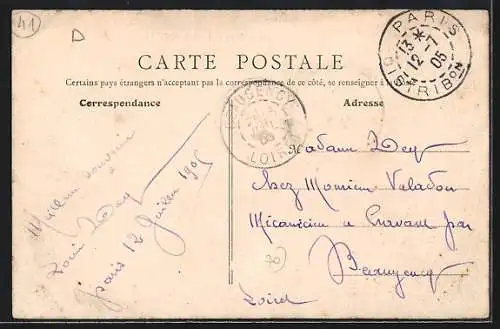 41
D
CARTE POSTALE
Certains pays étrangers n'acceptant pas la correspondance de ce côté, se renseigner à la
Correspondance
Adresse
PARIS
13 * 12 - 7 05
DISTRIBON
BEAUGENCY
LOIRET
Meilleur souvenir
Louis Dey
Paris 12 Juillet 1905
Madame Dey
Chez Monsieur Valadon
Mécanicien à Cravant par
Beaugency
Loiret